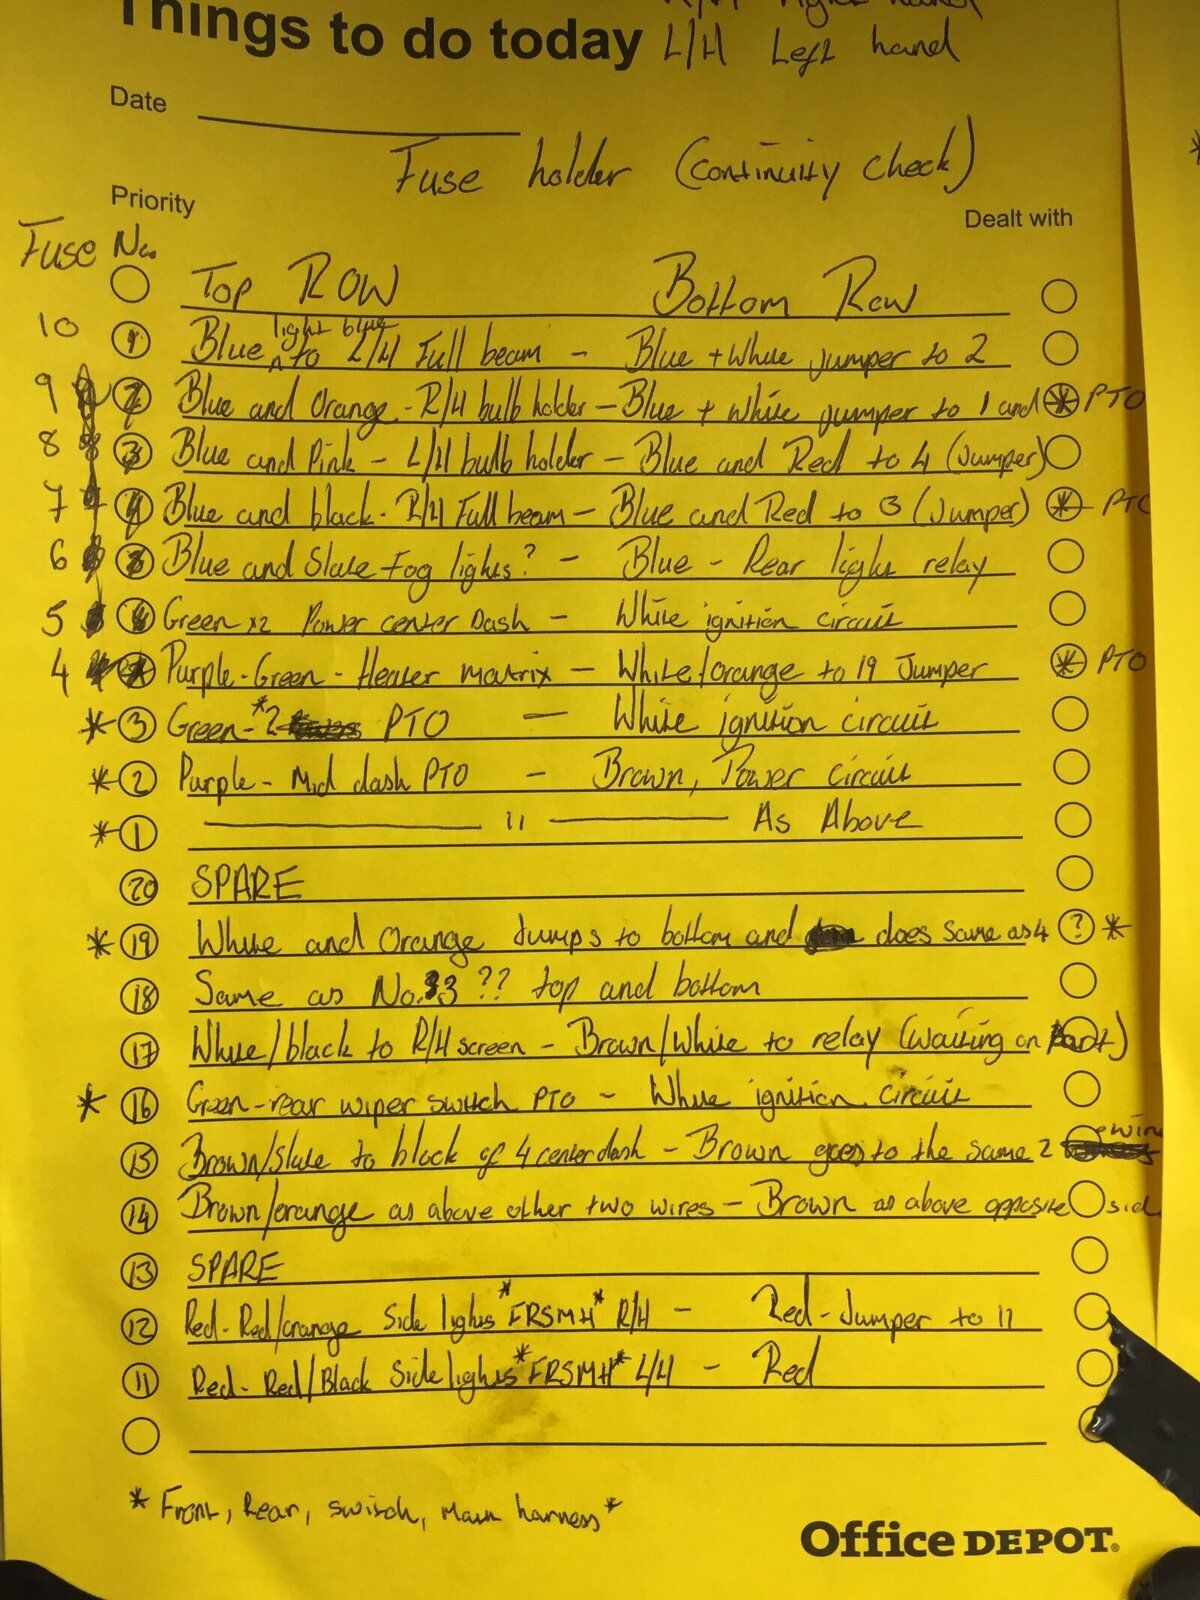 Things to do today
L/H Left hand
Date
Fuse holder (continuity check)
Priority
Dealt with
Fuse No.
Top ROW Bottom Row
10 Blue light blue to L/H Full beam - Blue + White jumper to 2
9 Blue and Orange - R/H bulb holder - Blue + White jumper to 1 and * PTO
8 Blue and Pink - L/H bulb holder - Blue and Red to 4 (Jumper)
7 Blue and black - R/H Full beam - Blue and Red to 3 (Jumper) * PTO
6 Blue and Slate - Fog lights? - Blue - Rear light relay
5 Green x2 Power center Dash - White ignition circuit
4 Purple - Green - Heater matrix - White/orange to 19 Jumper * PTO
* 3 Green - *2 PTO - White ignition circuit
* 2 Purple - Mid dash PTO - Brown, Power circuit
* 1 " As Above
20 SPARE
* 19 White and Orange Jumps to bottom and does same as 4 ? *
18 Same as No. 3 ?? top and bottom
17 White/black to R/H screen - Brown/White to relay (waiting on part)
* 16 Green - rear wiper switch PTO - White ignition circuit
15 Brown/Slate to block of 4 center dash - Brown goes to the same 2
14 Brown/orange as above other two wires - Brown as above opposite side
13 SPARE
12 Red - Red/orange Side lights *FRSMH* R/H - Red - Jumper to 11
11 Red - Red/Black Side lights *FRSMH* L/H - Red
* Front, Rear, switch, main harness *
Office DEPOT.